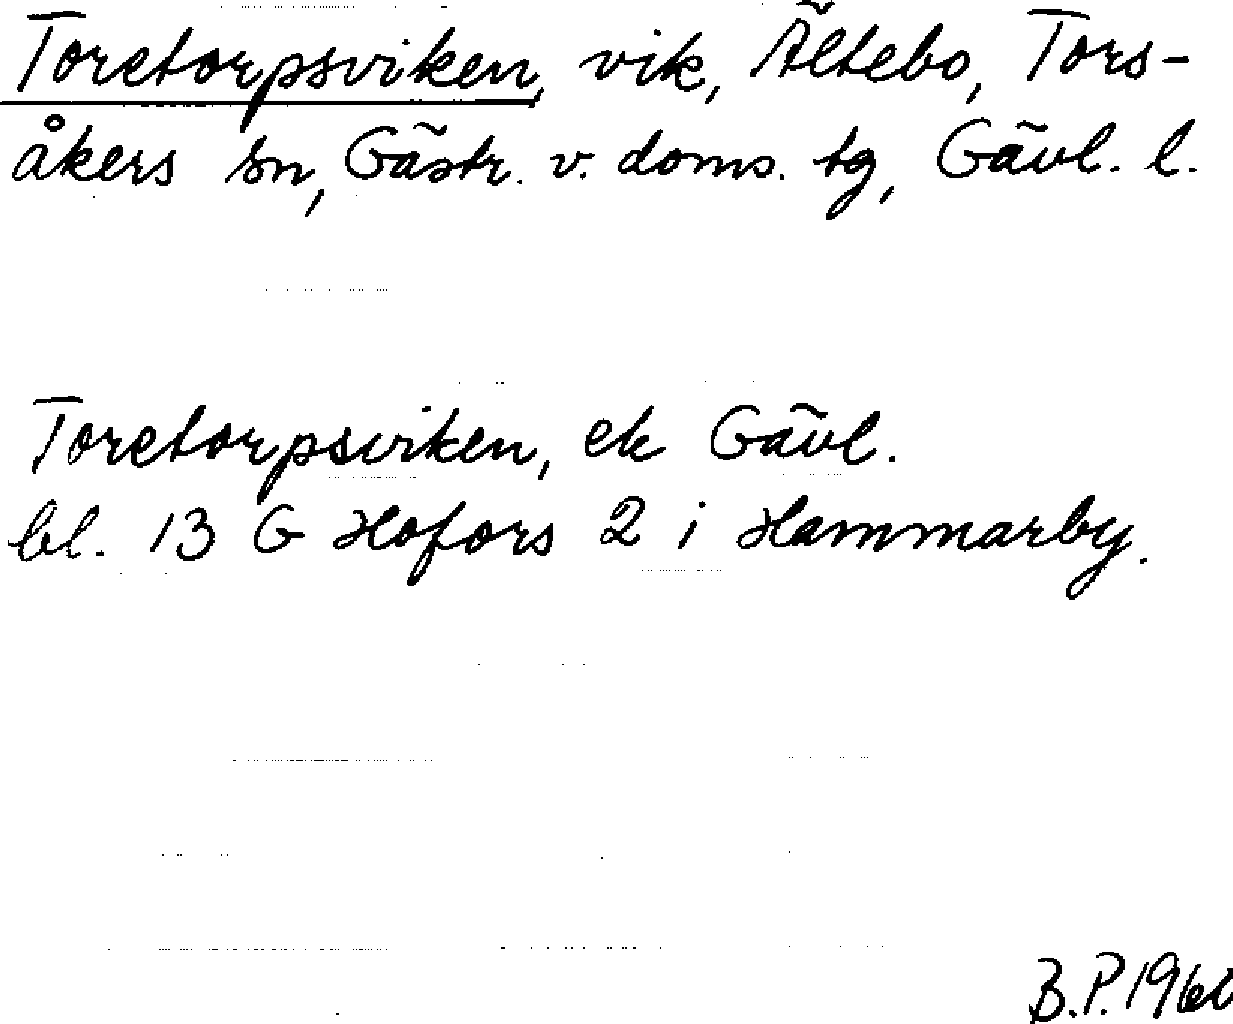 Toretorpsviken, vik, Ältebo, Tors-
åkers sn, Gästr. v. doms. tg, Gävl. l.
Toretorpsviken, ek Gävl.
bl. 13 G Hofors 2 i Hammarby.
B.P.